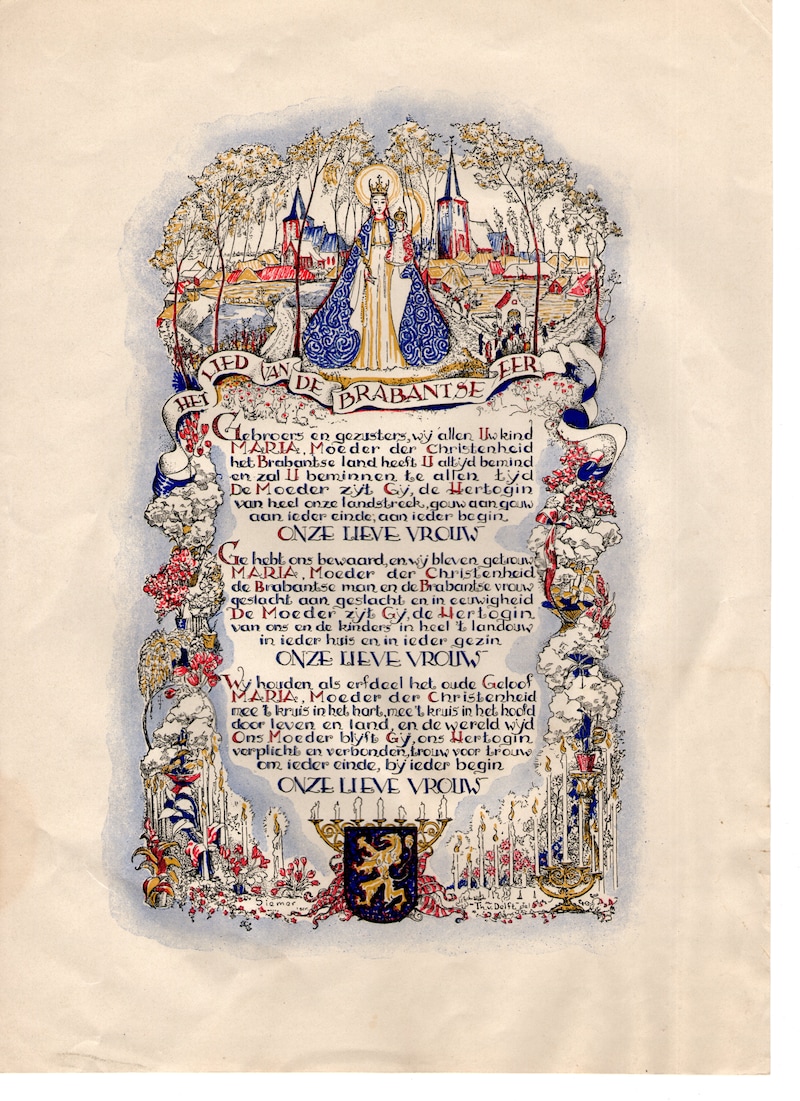 HET LIED VAN DE BRABANTSE EER
Gebroers en gezusters, wij allen Uw kind
MARIA, Moeder der Christenheid
het Brabantse land heeft U altijd bemind
en zal U beminnen te allen tijd
De Moeder zijt Gij, de Hertogin
van heel onze landstreek, gouw aan gouw
aan ieder einde, aan ieder begin
ONZE LIEVE VROUW
Ge hebt ons bewaard, en wij bleven getrouw
MARIA, Moeder der Christenheid
de Brabantse man en de Brabantse vrouw
geslacht aan geslacht en in eeuwigheid
De Moeder zijt Gij, de Hertogin
van ons en de kinders in heel 't landouw
in ieder huis en in ieder gezin
ONZE LIEVE VROUW
Wij houden als erfdeel het oude Geloof
MARIA, Moeder der Christenheid
mee 't kruis in het hart, mee 't kruis in het hoofd
door leven en land, en de wereld wijd
Ons Moeder blijft Gij, ons Hertogin
verplicht en verbonden, trouw voor trouw
om ieder einde, bij ieder begin
ONZE LIEVE VROUW
Siemer
Th. v. Delft